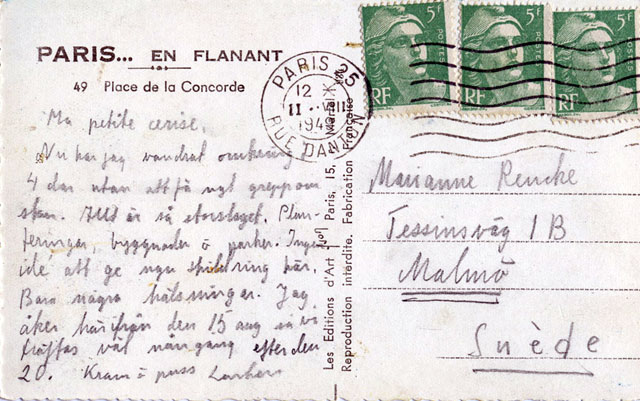 PARIS... EN FLANANT
49 Place de la Concorde
Ma petite cerise.
Nu har jag vandrat omkring
4 dar utan att få ngt grepp om
stan. Allt är så storslaget. Plan-
teringar, byggnader o parker. Ingen
ide att ge ngn skildring här.
Bara några hälsningar. Jag
åker härifrån den 15 aug så vi
träffas väl någgang efter den
20. Kram o puss
Les Editions d'Art Paris, 15,
Reproduction interdite. Fabrication Française
PARIS 25
12
II
194
RUE DANTON
5F
POSTES
RF
5F
POSTES
RF
5F
RF
Marianne Rencke
Tessinsväg 1B
Malmö
Suède